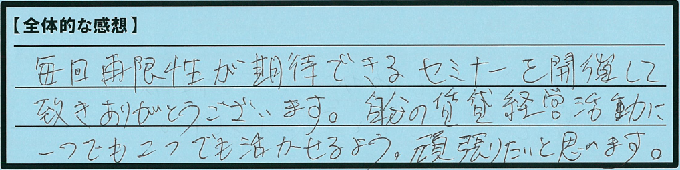 【全体的な感想】
毎回再限性が期待できるセミナーを開催して
致きありがとうございます。自分の賃貸経営活動に
一つでも二つでも活かせるよう、頑張りたいと思います。